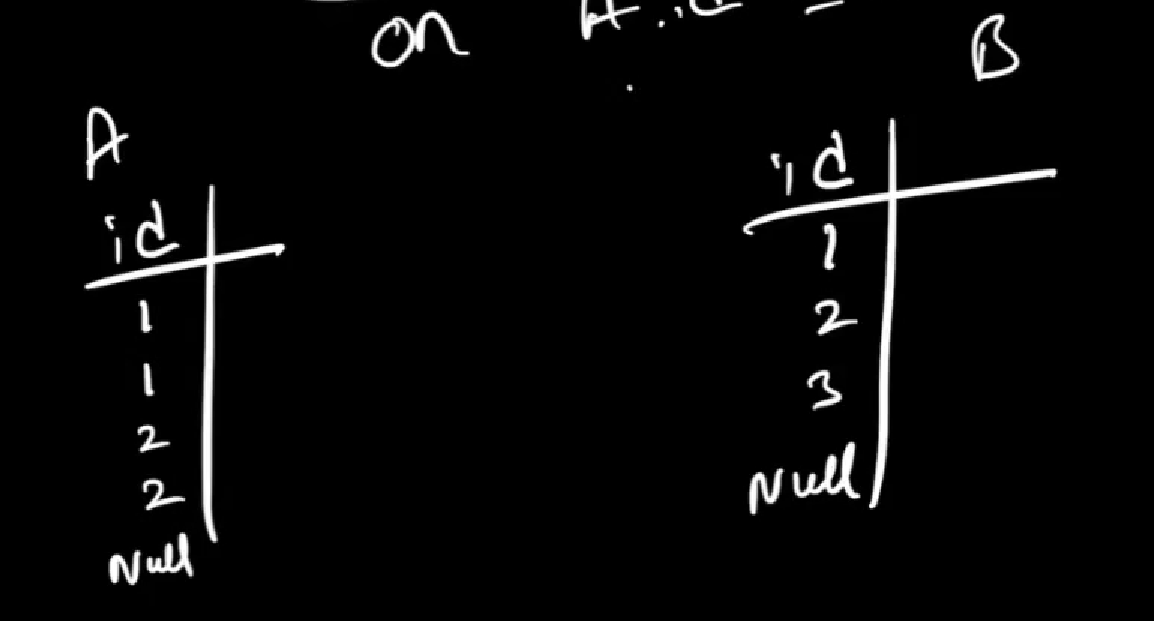 on A.id =
A
id
1
1
2
2
Null
B
id
1
2
3
Null